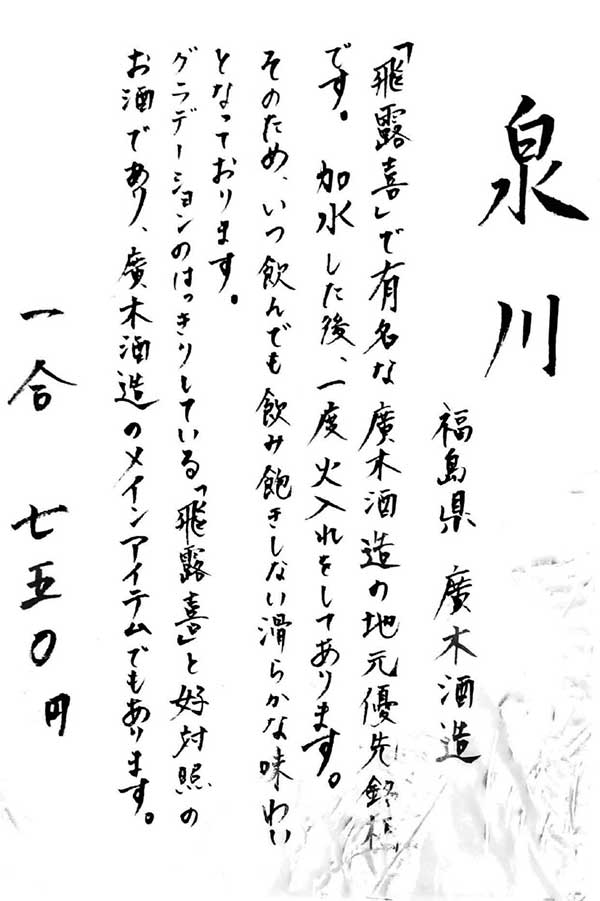 泉川
福島県 廣木酒造
「飛露喜」で有名な廣木酒造の地元優先銘柄
です。 加水した後、一度火入れをしてあります。
そのため、いつ飲んでも飲み飽きしない滑らかな味わい
となっております。
グラデーションのはっきりしている「飛露喜」と好対照の
お酒であり、廣木酒造のメインアイテムでもあります。
一合 七五〇円